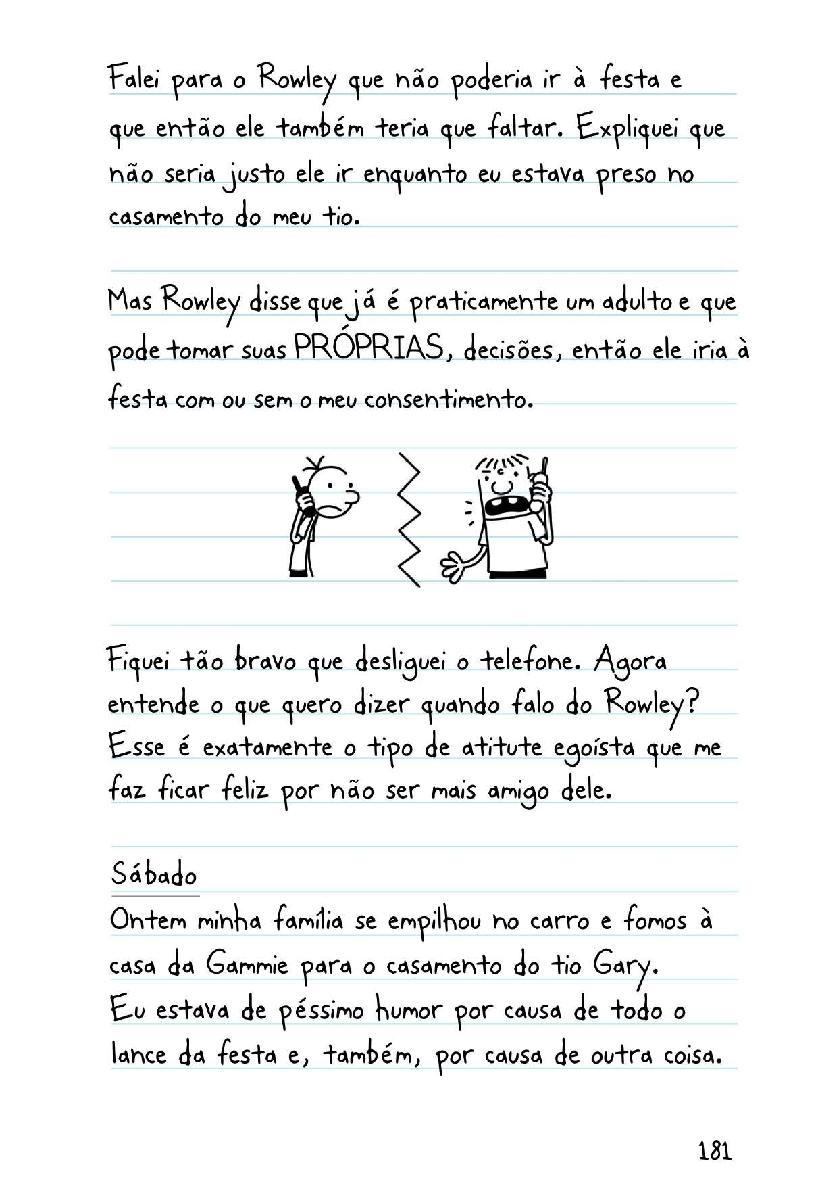 Falei para o Rowley que não poderia ir à festa e
que então ele também teria que faltar. Expliquei que
não seria justo ele ir enquanto eu estava preso no
casamento do meu tio.
Mas Rowley disse que já é praticamente um adulto e que
pode tomar suas PRÓPRIAS, decisões, então ele iria à
festa com ou sem o meu consentimento.
Fiquei tão bravo que desliguei o telefone. Agora
entende o que quero dizer quando falo do Rowley?
Esse é exatamente o tipo de atitute egoísta que me
faz ficar feliz por não ser mais amigo dele.
Sábado
Ontem minha família se empilhou no carro e fomos à
casa da Gammie para o casamento do tio Gary.
Eu estava de péssimo humor por causa de todo o
lance da festa e, também, por causa de outra coisa.
181